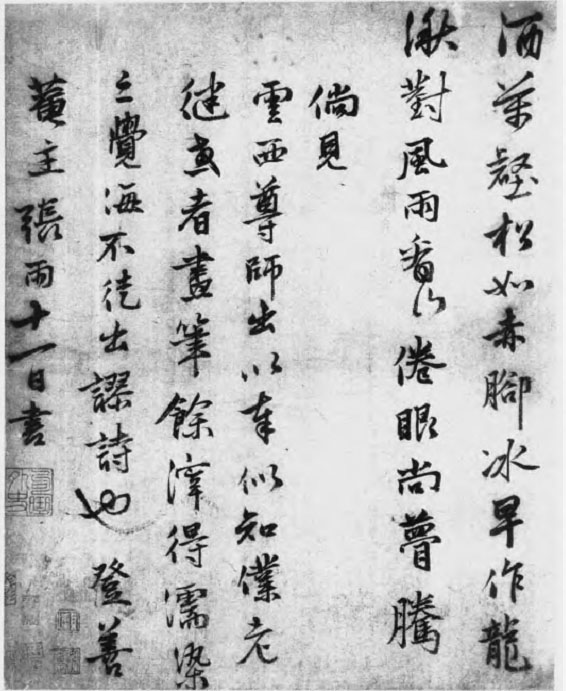 洒萬壑松如赤腳冰早作龍
湫對風雨看山倦眼尚瞢騰
倘見
雲西尊師出以奉似知僕老
者畫筆餘滓得濡染
覺海不徒出謬詩也 登善
菴主張雨十一日書